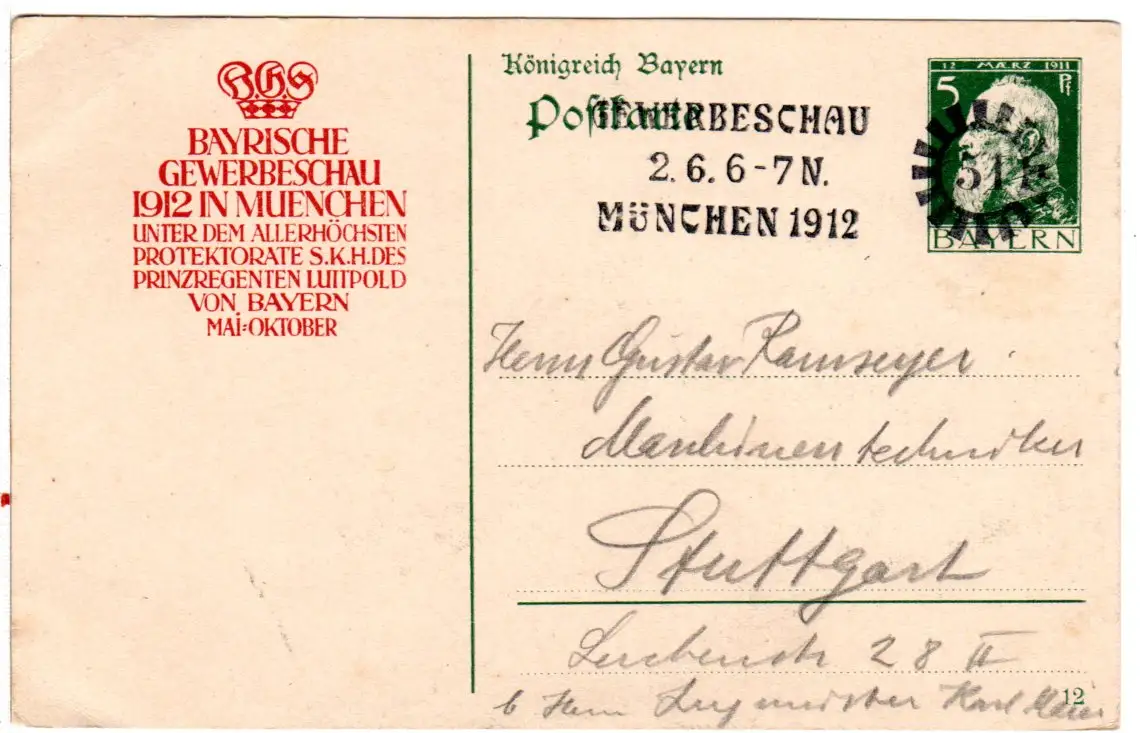 B.G.S
BAYRISCHE
GEWERBESCHAU
1912 IN MUENCHEN
UNTER DEM ALLERHÖCHSTEN
PROTEKTORATE S.K.H. DES
PRINZREGENTEN LUITPOLD
VON BAYERN
MAI-OKTOBER
Königreich Bayern
Postkarte
GEWERBESCHAU
2. 6. 6-7 N.
MÜNCHEN 1912
12 MÆRZ 1911
5 Pf
BAYERN
Herrn Gustav Ramseyer
Maschinentechniker
Stuttgart
Lerchenstr 28 II
b Herrn Zugmeister Karl Maier
12